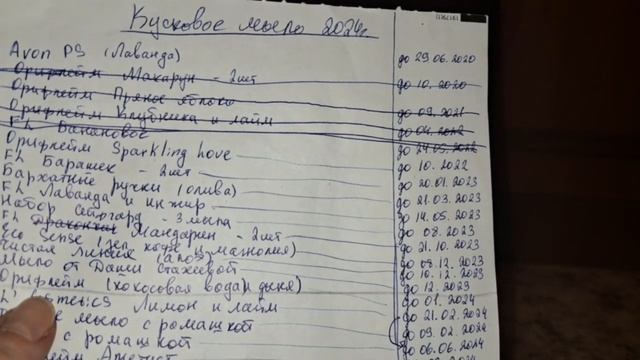 Кусковое мыло 2024г.
Avon PS (Лаванда) до 29.06.2020
Орифлейм Макарун - 2шт до 10.2020
Орифлейм Пряное яблоко до 09.2021
Орифлейм Клубника и лайм до 04.2022
FL Банановое до 24.05.2022
Орифлейм Sparkling Love до 10.2022
FL Барашек - 2шт до 20.01.2023
Бархатные ручки (олива) до 21.03.2023
FL Лаванда и инжир до 14.05.2023
Набор Сейфгард - 3 мыла до 08.2023
FL Мандарин - 2шт до 21.10.2023
Eco Sense (зел. кофе и магнолия) до 08.12.2023
Чистая Линия (алоэ) до 10.12.2023
Мыло от Даши Стахеевой до 12.2023
Орифлейм (кокосовая вода и дыня) до 01.2024
Лимон и лайм до 21.02.2024
мыло с ромашкой до 09.02.2024
с ромашкой до 06.06.2024
Аметист